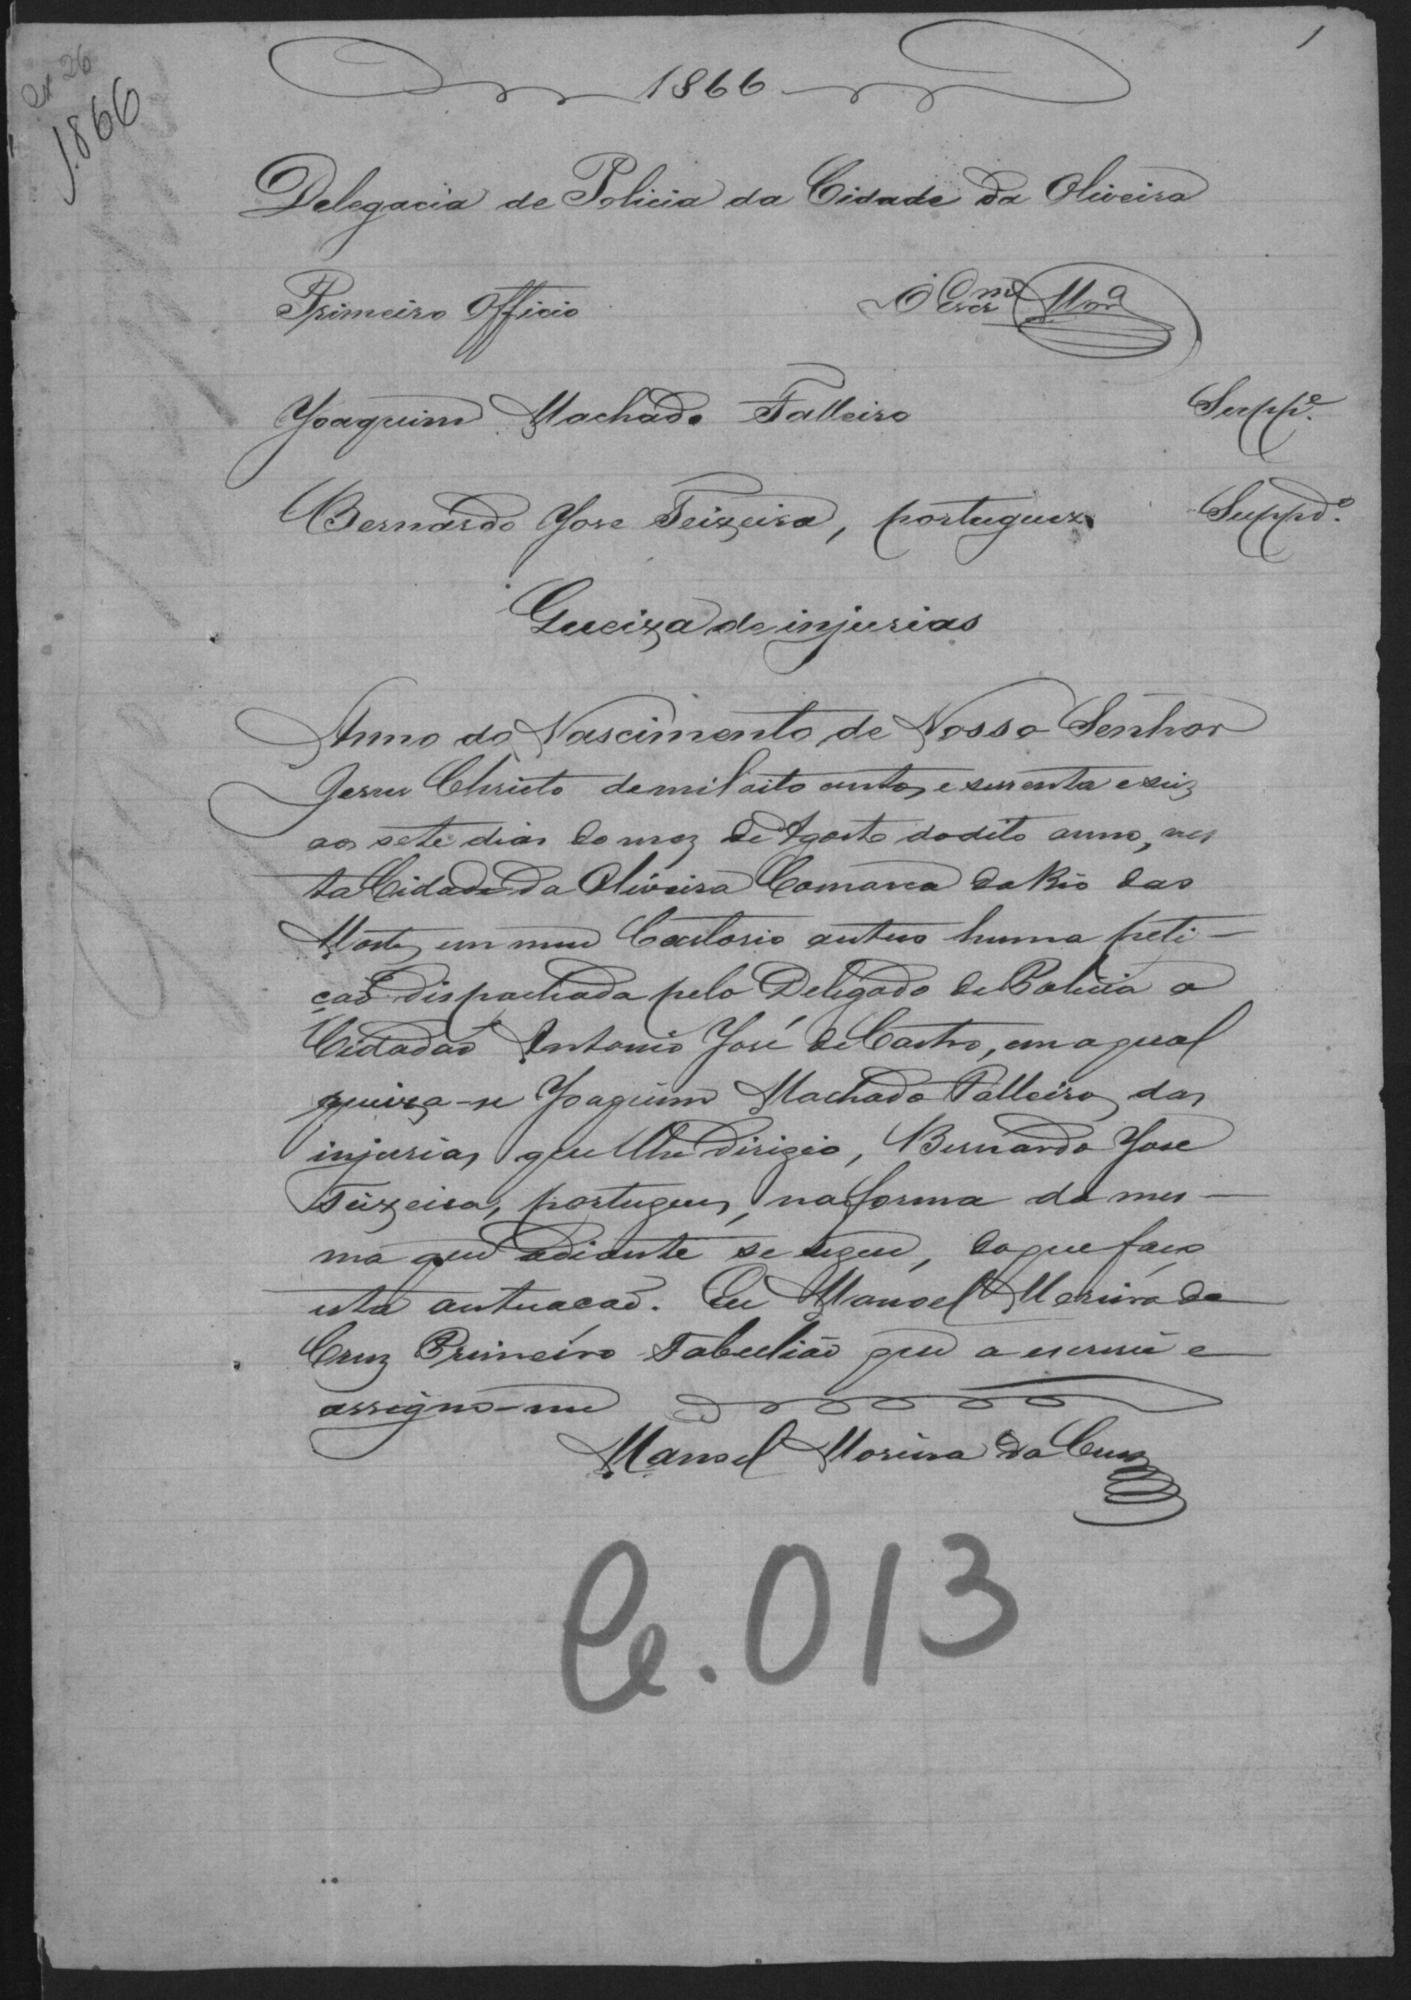 1
cx 26
1866
1866
Delegacia de Policia da Cidade da Oliveira
Primeiro Officio
Joaquim Machado Falleiro Suppe.
Bernardo Jose Teixeira, portuguez Suppdo.
Queixa de injurias
Anno do Nascimento de Nosso Senhor
Jesus Christo de mil oito centos e sessenta e seis
aos sete dias do mez de Agosto do dito anno, nes
ta Cidade da Oliveira Comarca do Rio das
Mortes em meu Cartorio autuo huma peti-
ção dispachada pelo Delegado de Policia o
Cidadão Antonio José de Castro, em a qual
queixa-se Joaquim Machado Falleiro, das
injurias que lhe dirigio, Bernardo Jose
Teixeira, portugues, na forma da mes-
ma que adiante se segue, do que faço
esta autuacão. Eu Manoel Moreira da
Cruz Primeiro Tabelião que a escrevi e
assigno-me
Manoel Moreira da Cruz
Ce. 013